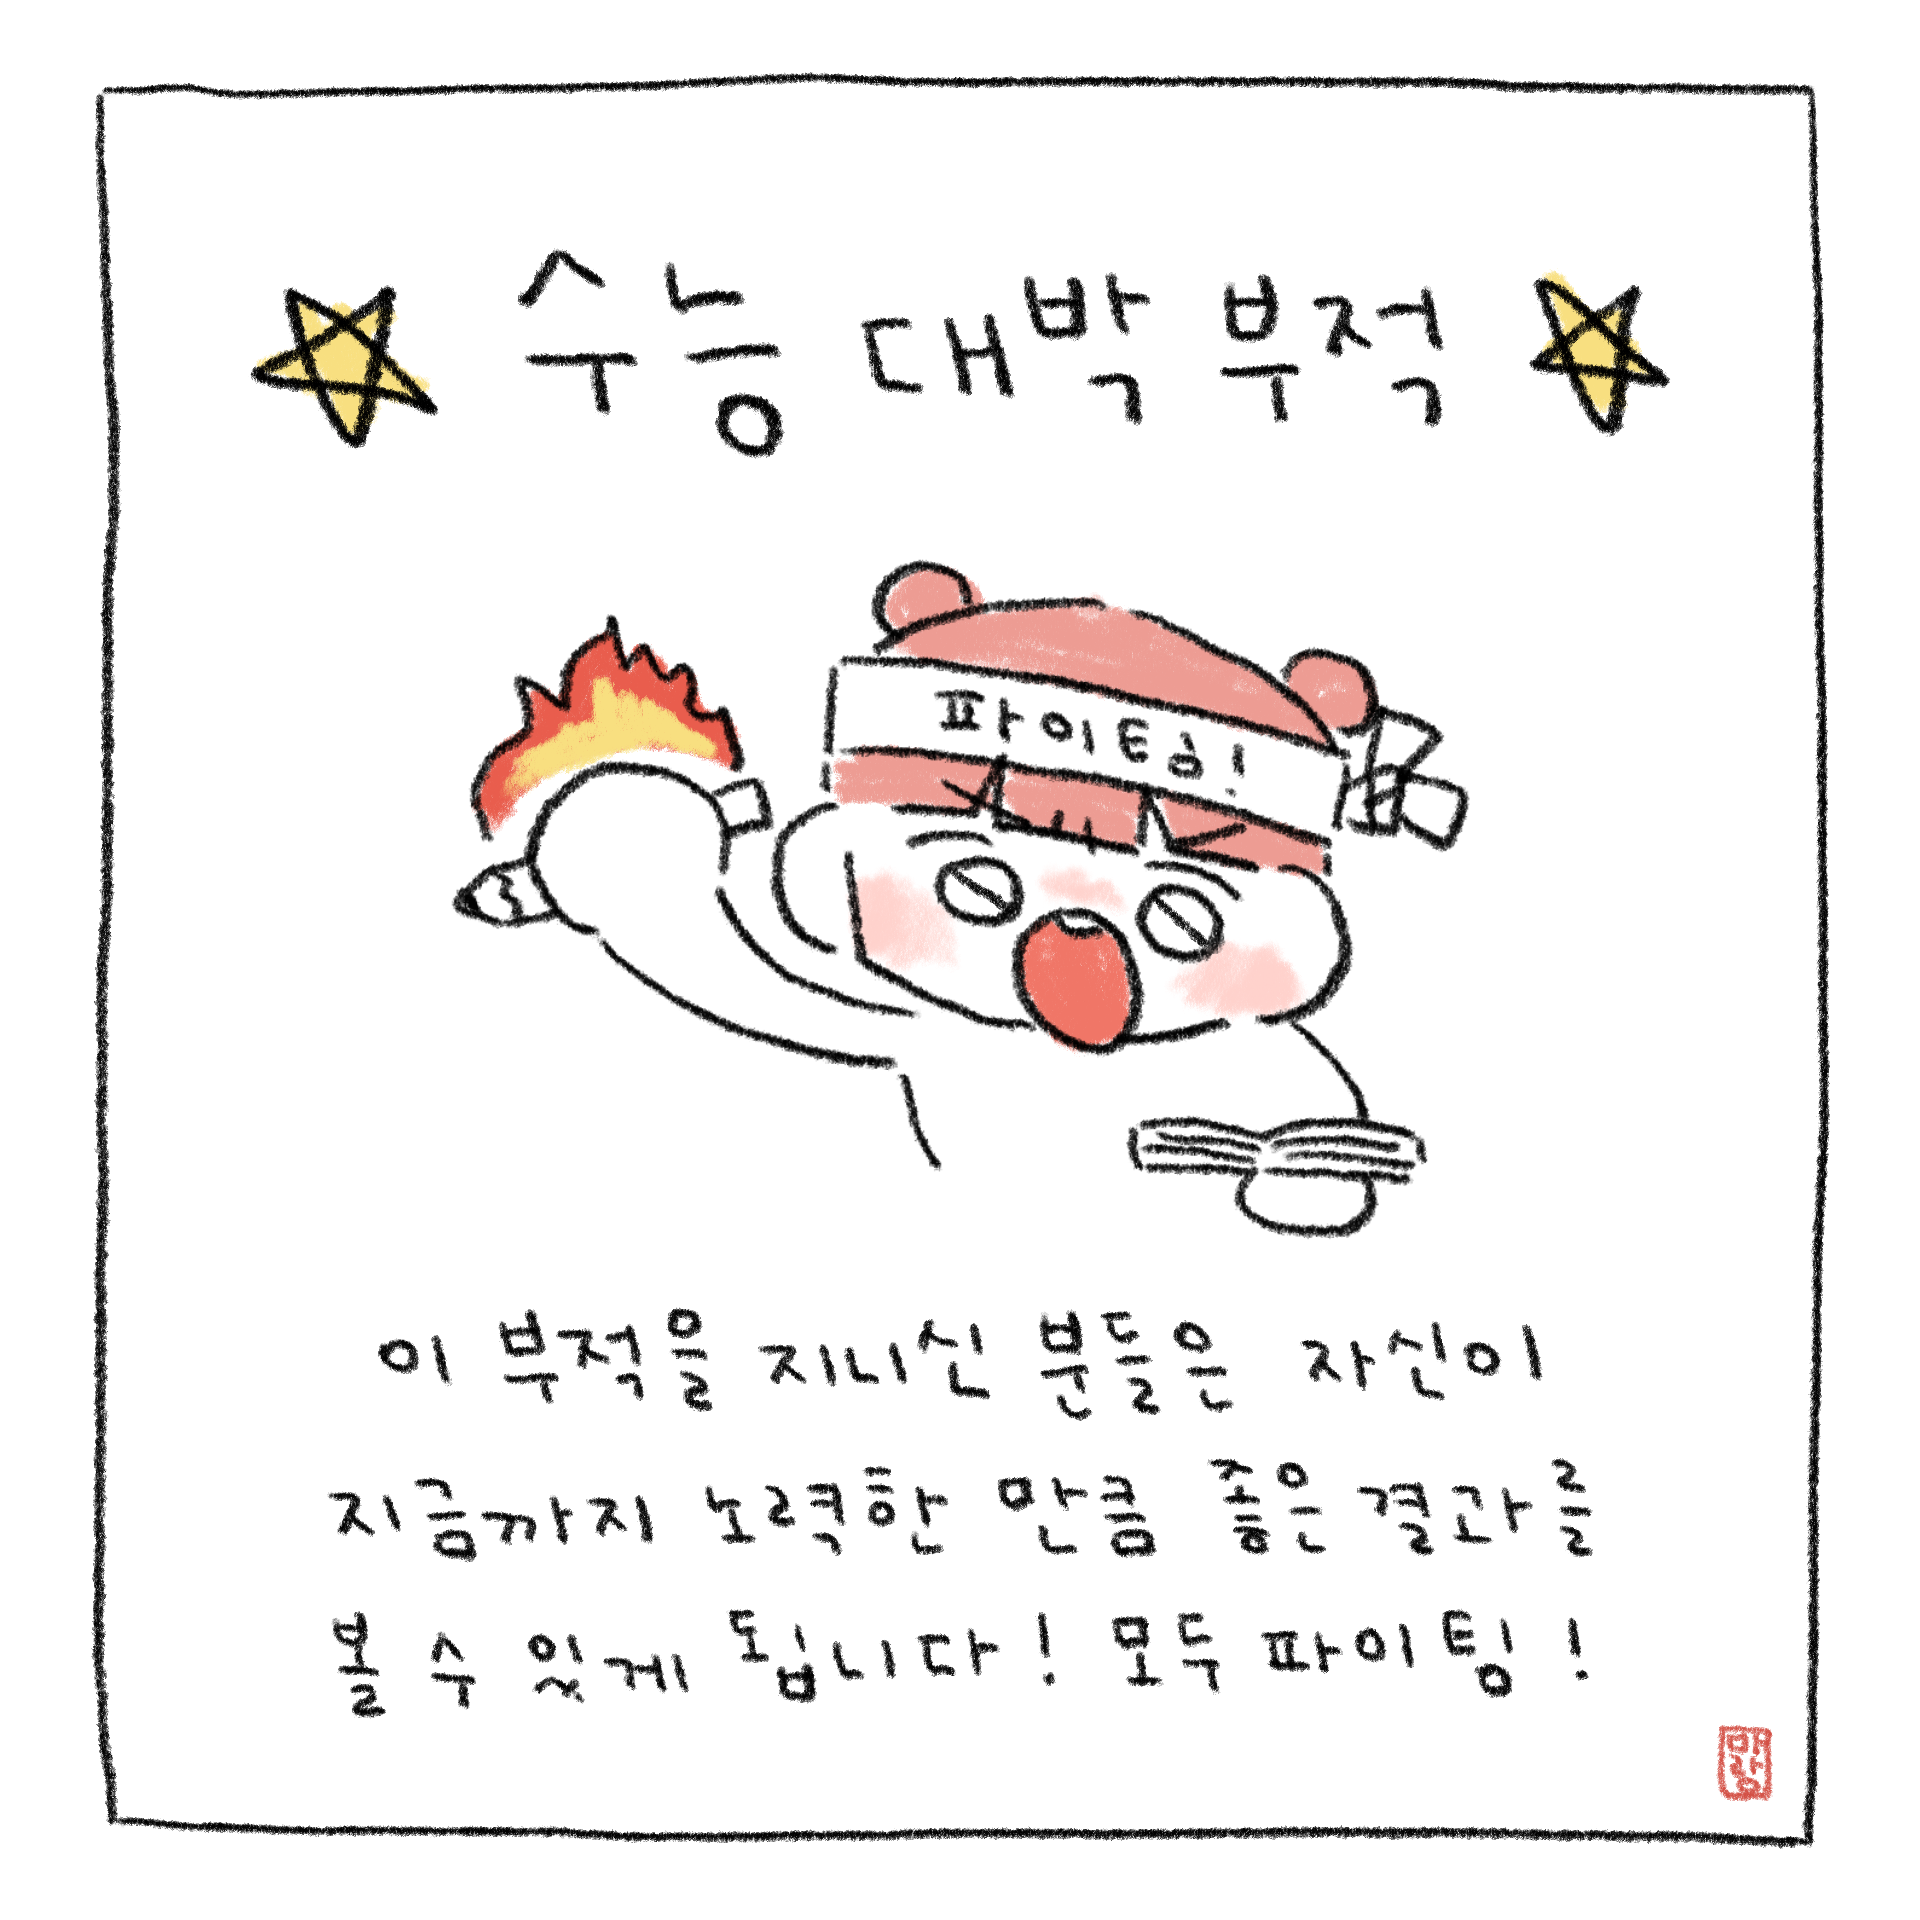 수능 대박 부적
파이팅!
이 부적을 지니신 분들은 자신이
지금까지 노력한 만큼 좋은 결과를
볼 수 있게 됩니다! 모두 파이팅!
마랑